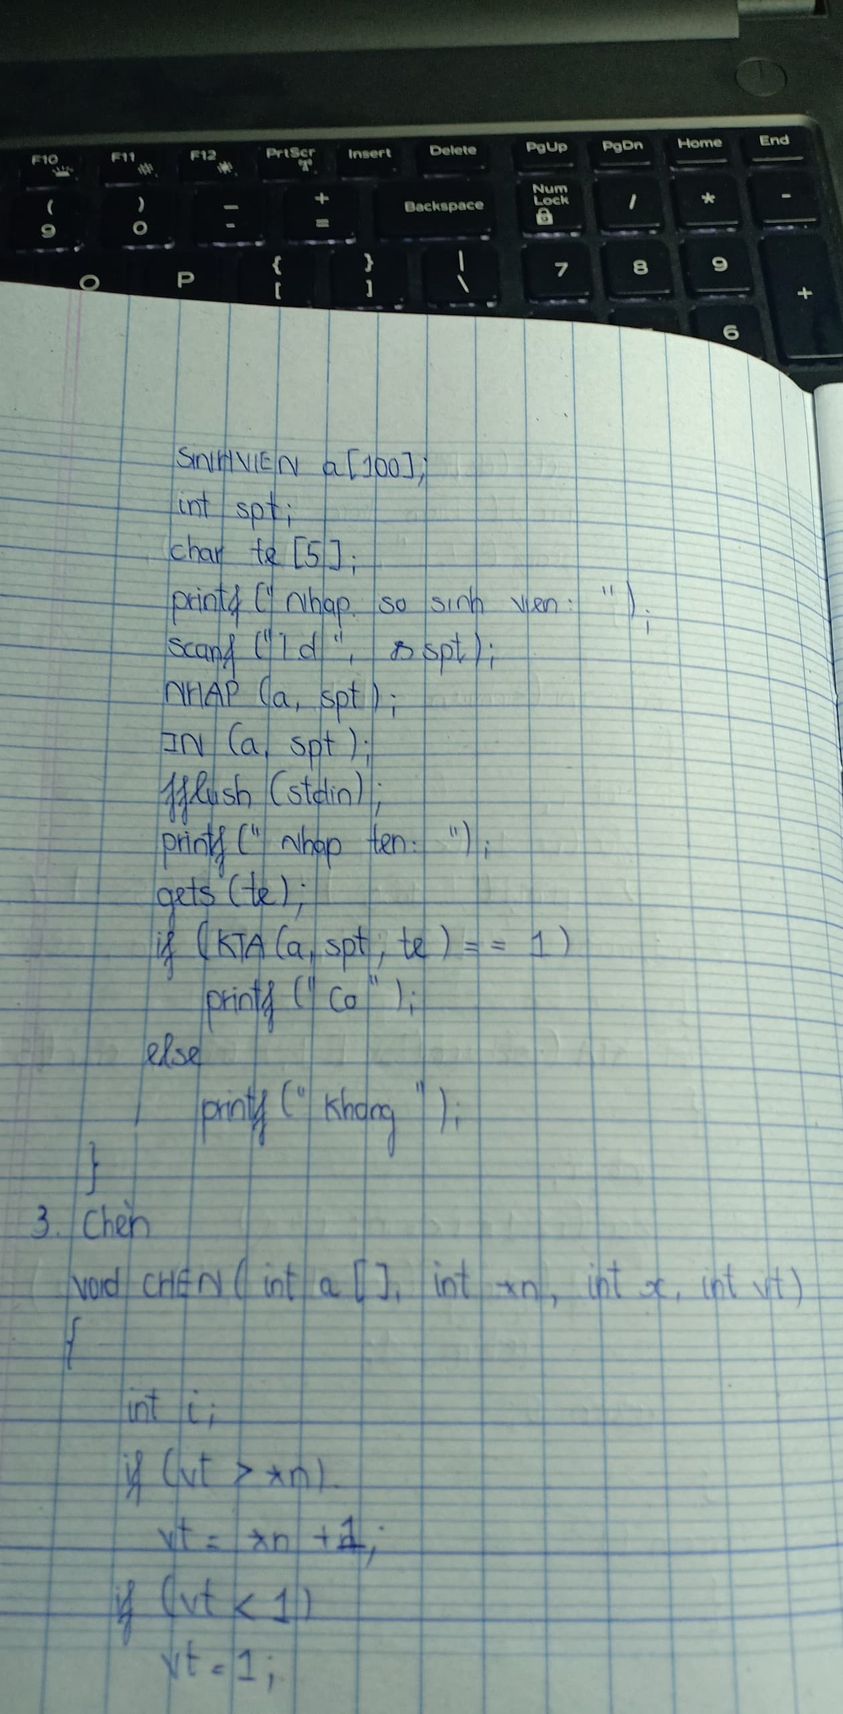 F10 F11 F12 PrtScr Insert Delete PgUp PgDn Home End
( ) _ + Backspace Num Lock / * -
9 0 - =
O P { } | 7 8 9 +
[ ] \
6
SINHVIEN a[100];
int spt;
char te[5];
printf ("Nhap so sinh vien: ");
scanf ("%d", &spt);
NHAP (a, spt);
IN (a, spt);
fflush (stdin);
printf (" Nhap ten: ");
gets (te);
if (KTA(a, spt, te) == 1)
printf ("Co");
else
printf (" Khong ");
}
3. Chèn
void CHEN( int a[], int *n, int x, int vt)
{
int i;
if (vt > *n)
vt = *n +1;
if (vt < 1)
vt = 1;